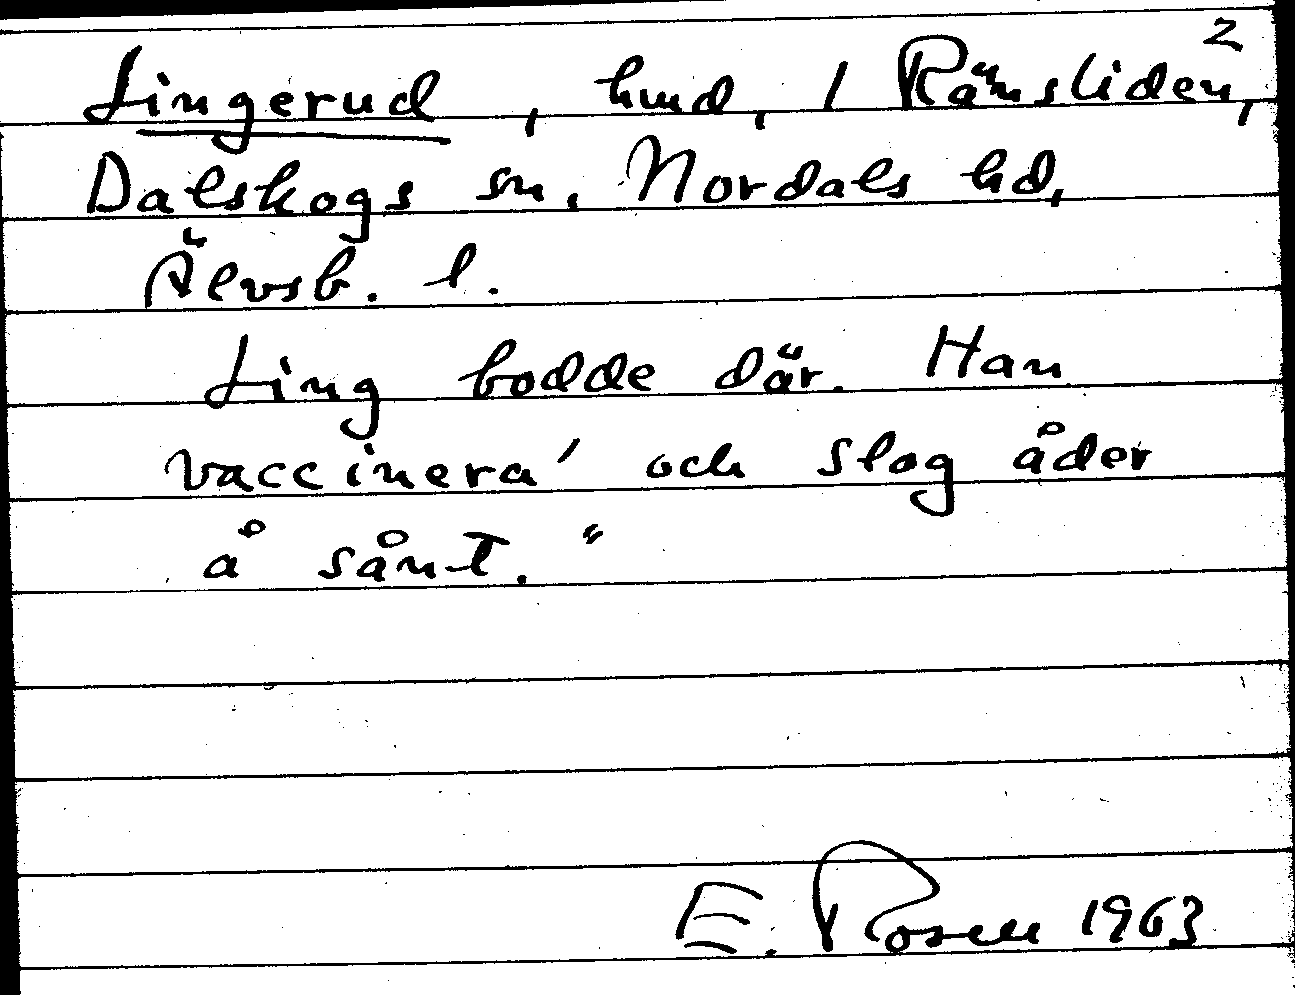 Lingerud, hmd, / Rämsliden, 2
Dalskogs sn. Nordals hd,
Älvsb. l.
Ling bodde där. Han
vaccinera' och slog åder
å sånt."
E. Rosell 1963